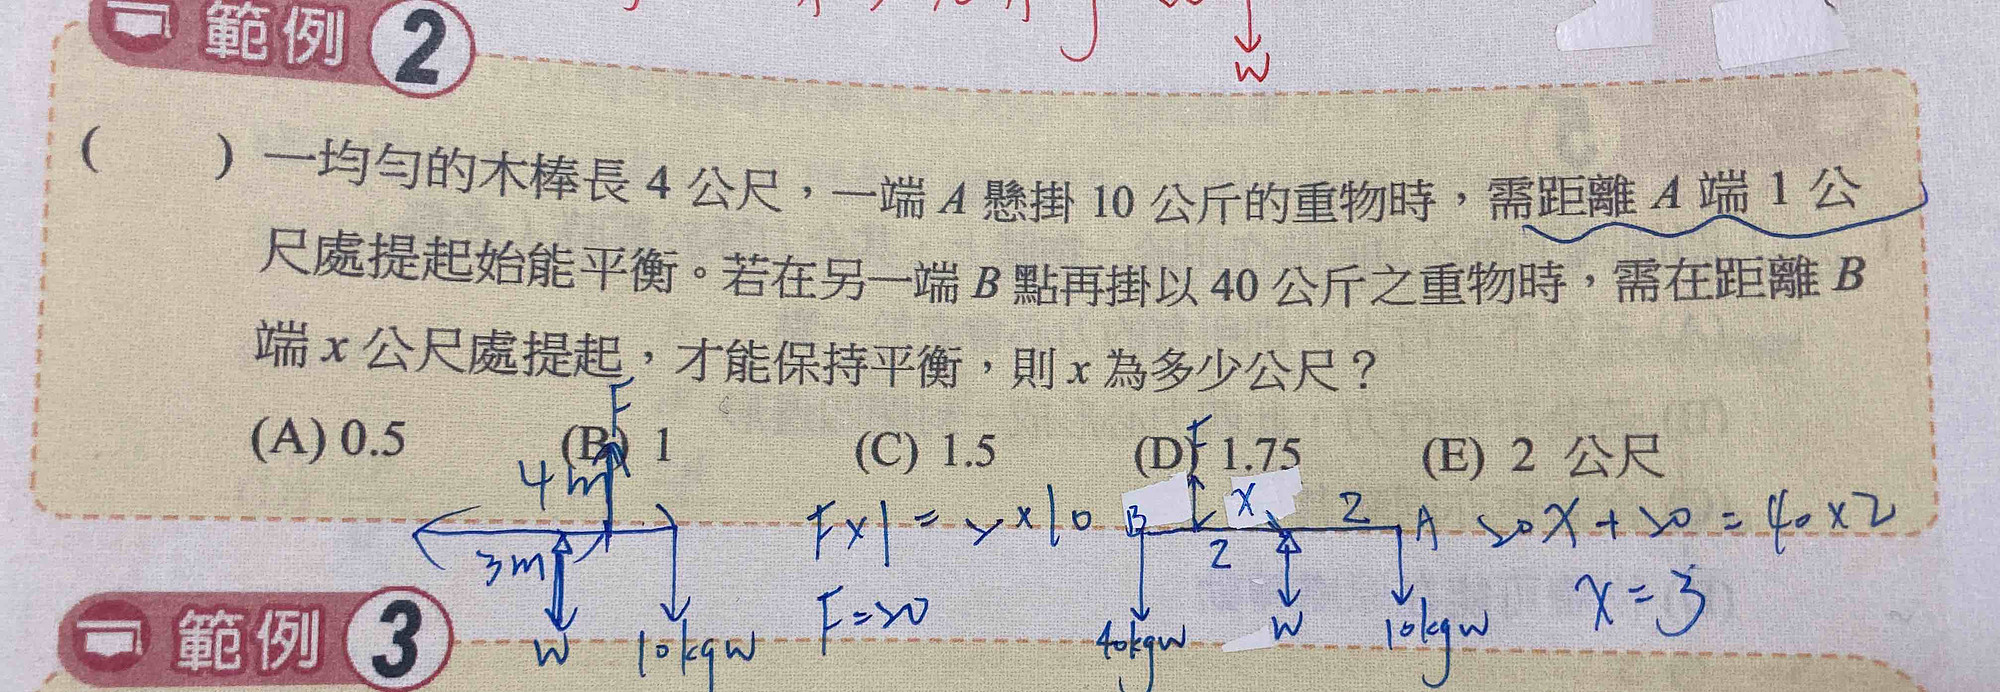 W
範例 2
( ) 一均勻的木棒長 4 公尺，一端 A 懸掛 10 公斤的重物時，需距離 A 端 1 公
尺處提起始能平衡。若在另一端 B 點再掛以 40 公斤之重物時，需在距離 B
端 x 公尺處提起，才能保持平衡，則 x 為多少公尺？
(A) 0.5 (B) 1 (C) 1.5 (D) 1.75 (E) 2 公尺
F
F
4m
X
2
B
A
F×1=2×10
20X+20=40×2
3m
2
X=3
F=20
W
10kgw
40kgw
W
10kgw
範例 3